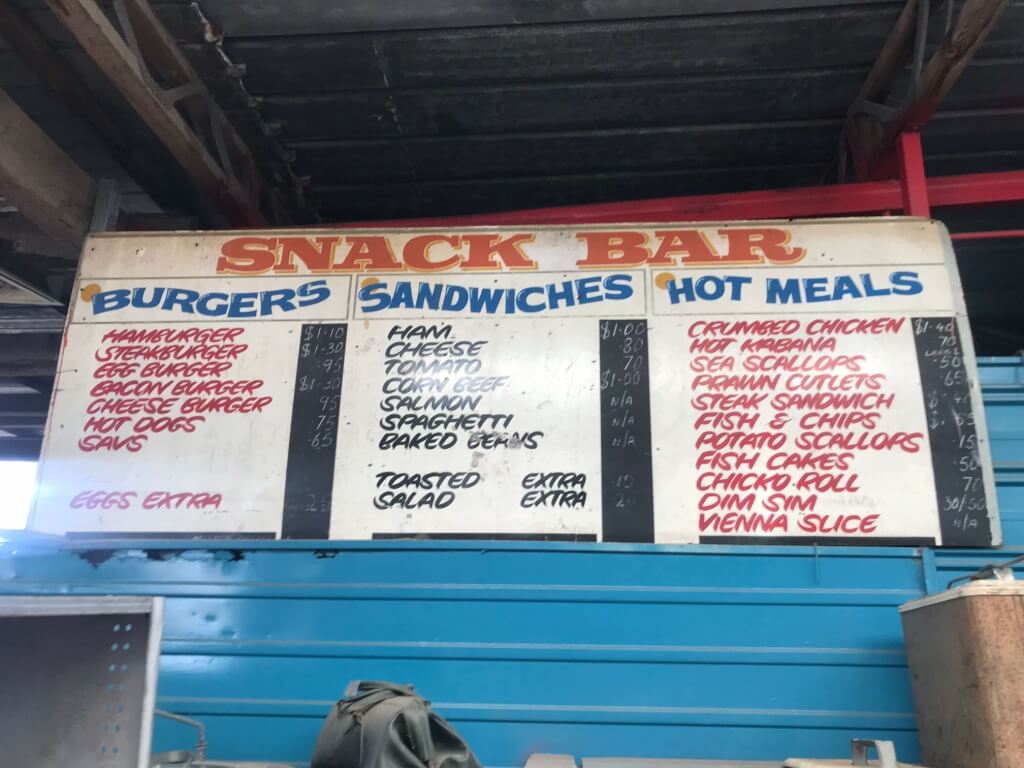 SNACK BAR
BURGERS
HAMBURGER $1.10
STEAKBURGER $1.30
EGG BURGER .95
BACON BURGER $1.30
CHEESE BURGER .95
HOT DOGS .75
SAVS .65
EGGS EXTRA
SANDWICHES
HAM $1.00
CHEESE .80
TOMATO .70
CORN BEEF $1.00
SALMON N/A
SPAGHETTI N/A
BAKED BEANS
TOASTED EXTRA
SALAD EXTRA
HOT MEALS
CRUMBED CHICKEN $1.40
HOT KABANA 70
SEA SCALLOPS .50
PRAWN CUTLETS 65
STEAK SANDWICH
FISH & CHIPS
POTATO SCALLOPS .15
FISH CAKES .50
CHICKO ROLL 70
DIM SIM 30/50
VIENNA SLICE N/A